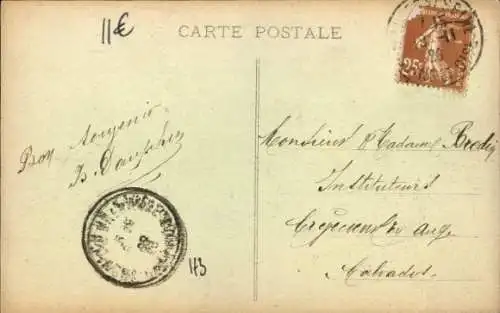 11€
CARTE POSTALE
25
Bon souvenir
Monsieur & Madame Bredin
Instituteurs
Crèvecoeur en Auge
Calvados
H3